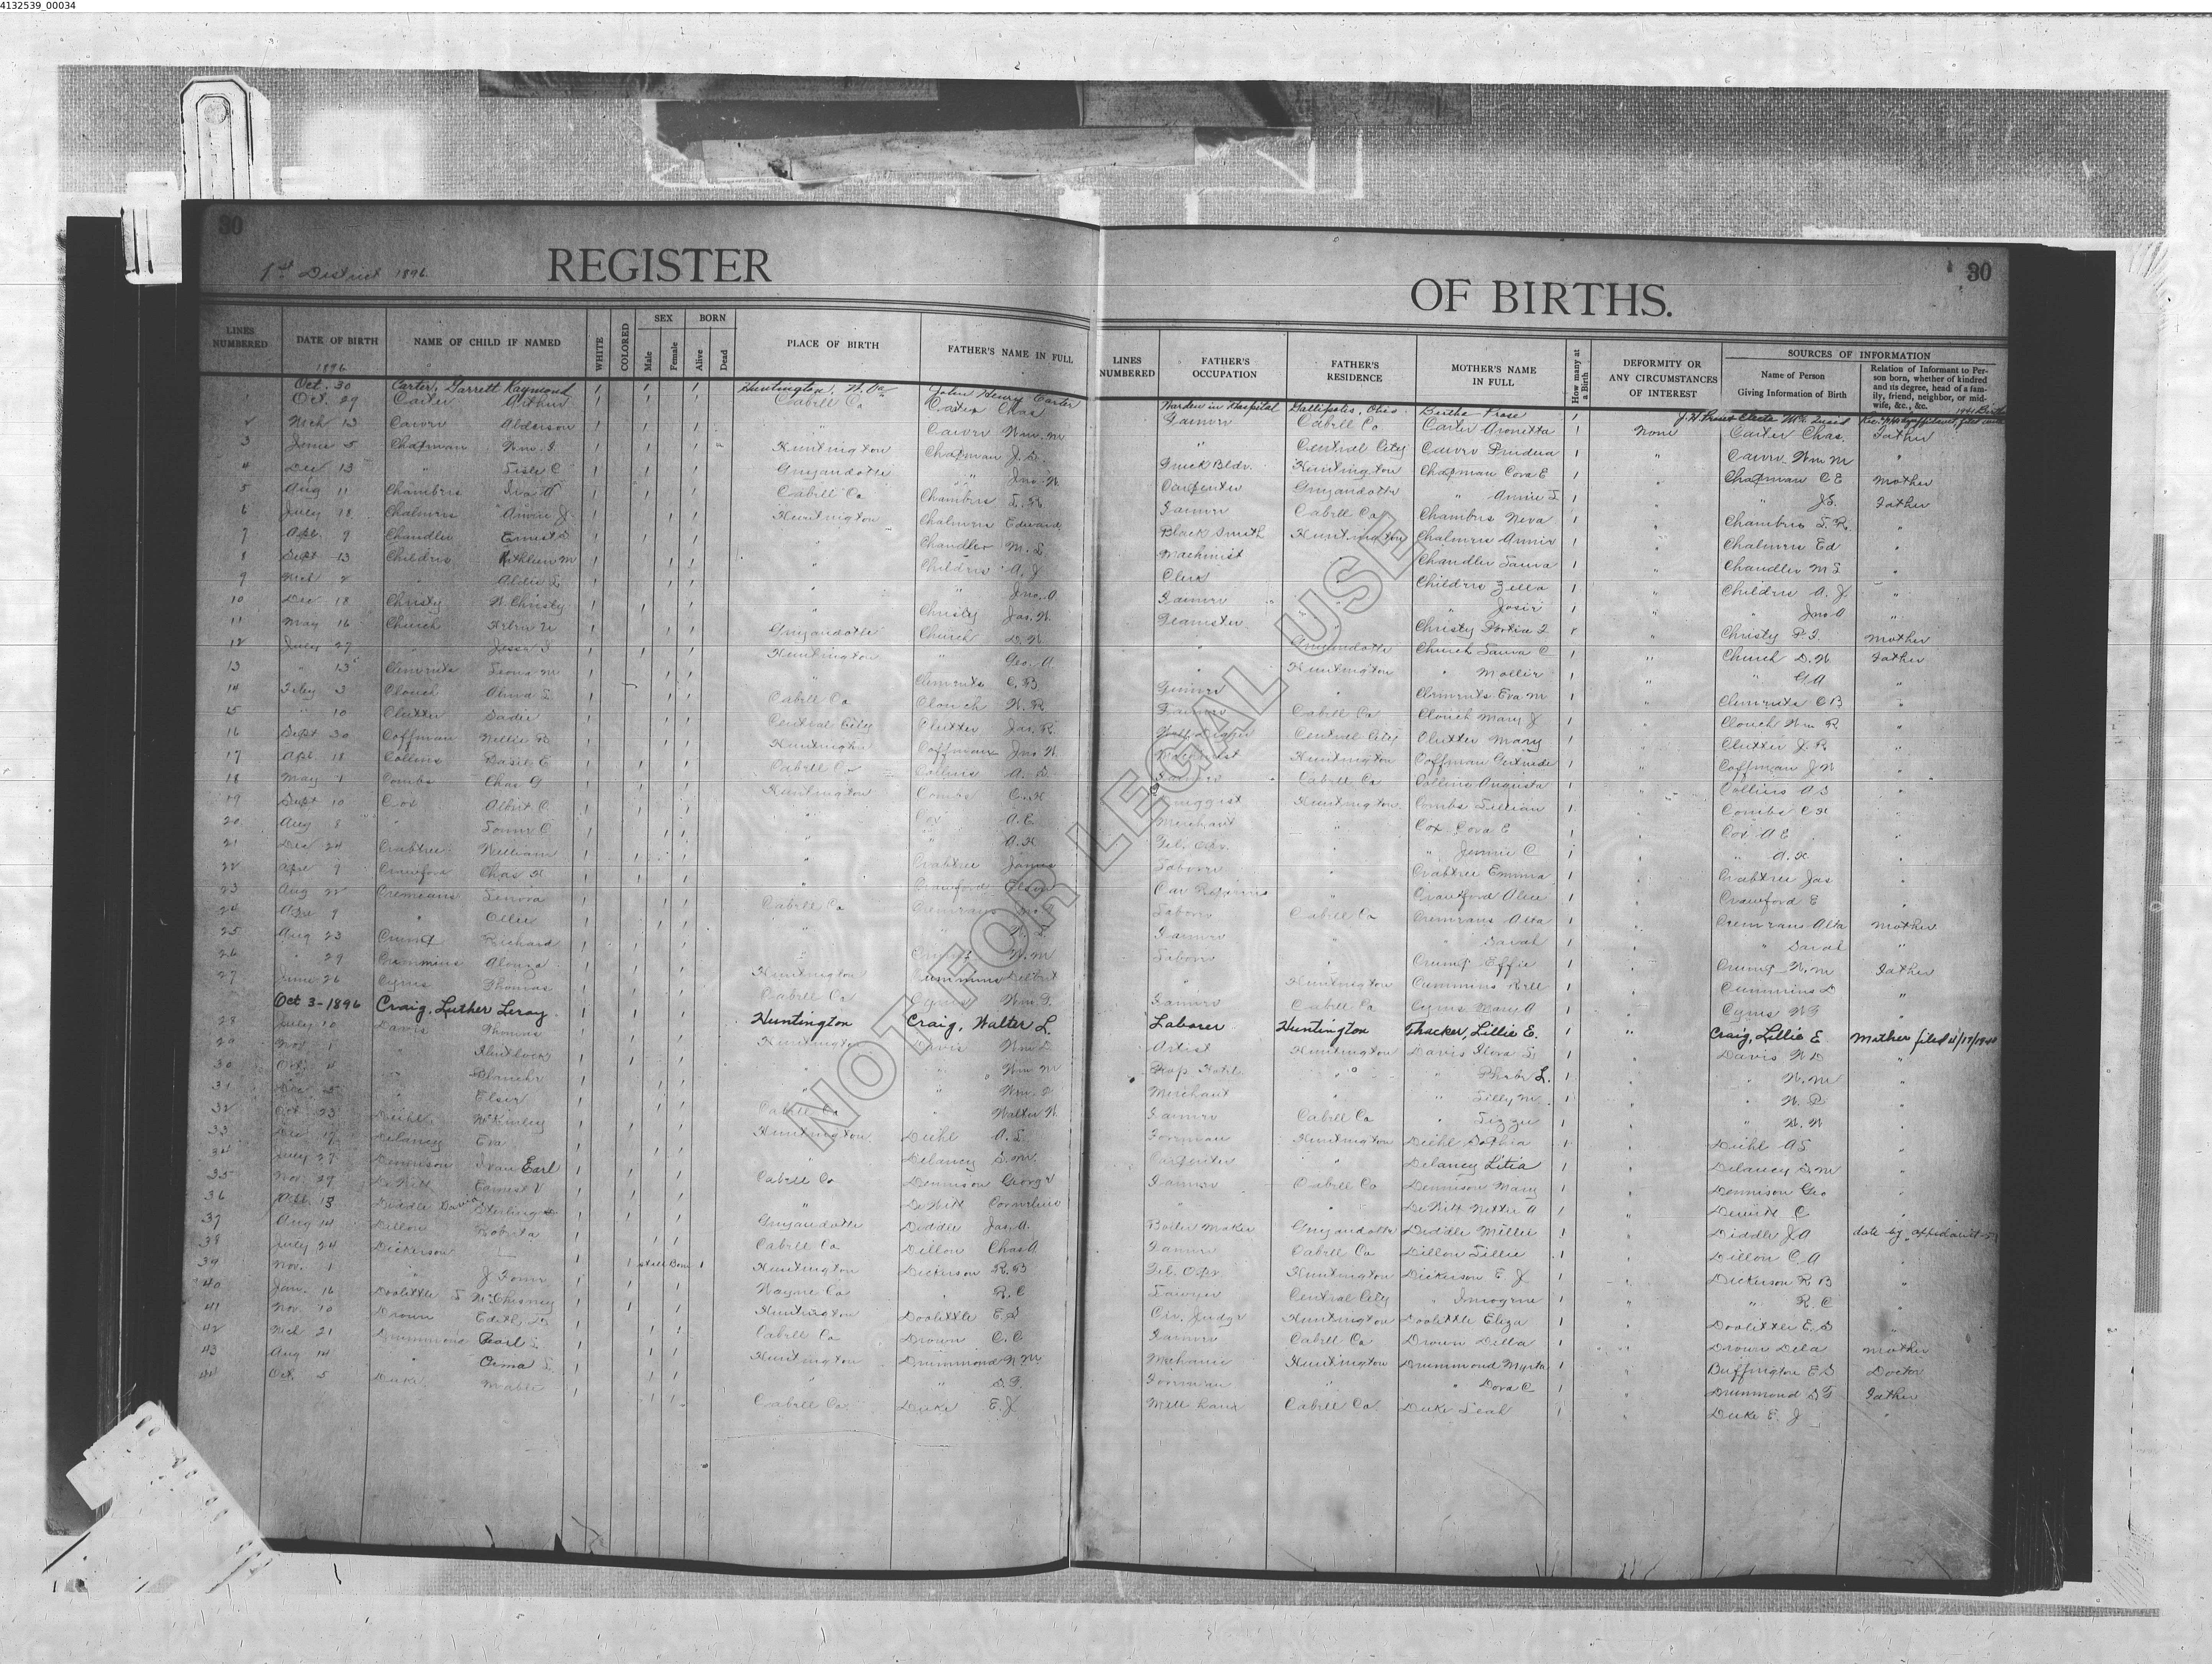 4132539_00034
30
1st District 1896
REGISTER
OF BIRTHS.
30
LINES NUMBERED DATE OF BIRTH NAME OF CHILD IF NAMED WHITE COLORED SEX Male Female BORN Alive Dead PLACE OF BIRTH FATHER'S NAME IN FULL
LINES NUMBERED FATHER'S OCCUPATION FATHER'S RESIDENCE MOTHER'S NAME IN FULL How many at a Birth DEFORMITY OR ANY CIRCUMSTANCES OF INTEREST SOURCES OF INFORMATION Name of Person Giving Information of Birth Relation of Informant to Person born, whether of kindred and its degree, head of a family, friend, neighbor, or midwife, &c., &c.
1896
Oct. 30 Carter, Garrett Raymond 1 1 1 Huntington, W. Va John Henry Carter Warden in Hospital Gallipolis, Ohio Bertha 1
Oct. 29 Carter Arthur 1 1 1 Cabell Co Carter Chas Farmer Cabell Co Carter Aronetta 1 None Carter Chas. Father
2 Mch 13 Alderson 1 1 1 " Wm. M Central City 1 " Wm M "
3 June 5 Chapman Wm. 1 1 1 Huntington Chapman J. Huntington Chapman Cora E 1 " Chapman C E Mother
4 Dec 13 " C 1 1 1 Guyandotte " Jno. W. Carpenter Guyandotte " Annie 1 " " J.S. Father
5 Aug 11 Chambers 1 1 1 Cabell Co Chambers Farmer Cabell Co Chambers Neva 1 "
6 July 18 1 1 1 Huntington Edward Black Smith Huntington Annie 1 " Ed "
7 Apl. 9 Chandler Ernest 1 1 1 " Chandler M. Machinist " Chandler Laura 1 " Chandler M S "
8 Sept 13 Childris Kathleen M 1 1 1 " Childris A. J Clerk Childris Zella 1 " Childris A. J "
9 Mch 2 " 1 1 1 " " Jno. A Farmer " " Josie 1 " " Jno A "
10 Dec 18 Christy W. Christy 1 1 1 " Christy Jas. W. Teamster " Christy Portia 1 " Christy P. Mother
11 May 16 Church 1 1 1 Guyandotte Church D. W " Guyandotte Church Laura C 1 " Church D. W Father
12 July 27 " 1 1 1 Huntington " Geo. A. " Huntington " Mollie 1 " " G A "
13 " 13 Clements Leona M 1 1 1 " Clements C. B Clements Eva M 1 " Clements C B "
14 Feby 3 Clouch Alma 1 1 1 Cabell Co Clouch W. R. Farmer Cabell Co Clouch Mary J 1 " Clouch Wm R "
15 " 10 Clutter Sadie 1 1 1 Central City Clutter Jas. R. Central City Clutter Mary 1 " Clutter J. R "
16 Sept 30 Coffman Nellie R 1 1 1 Huntington Coffman Jno. W. Machinist Huntington Coffman Gertrude 1 " Coffman J. W "
17 Apl. 18 Collins Basil E 1 1 1 Cabell Co Collins A. S. Farmer Cabell Co Collins Augusta 1 " Collins A S "
18 May 1 Combs Chas G 1 1 1 Huntington Combs Druggist Huntington Combs Lillian 1 " Combs "
19 Sept 10 Cox Albert C. 1 1 1 " Cox A. E. Merchant " Cox Cora E 1 " Cox A E "
20 Aug 8 " C 1 1 1 " " " Jennie C 1 " "
21 Dec 24 Crabtree William 1 1 1 " Crabtree James Laborer " Crabtree Emma 1 " Crabtree Jas "
22 Apr 9 Crawford Chas 1 1 1 " Crawford Car Repairer " Crawford Alice 1 " Crawford E "
23 Aug 22 Cremeans Lenora 1 1 1 Cabell Co Cremeans Laborer Cabell Co Cremeans Alta 1 " Cremeans Alta Mother
24 Apr 9 " Ollie 1 1 1 " " Farmer " " Sarah 1 " " Sarah "
25 Aug 23 Crump Richard 1 1 1 " Crump W. M Laborer " Crump Effie 1 " Crump W. M Father
26 " 29 Cummins Alonza 1 1 1 Huntington Cummins Delbert " Huntington Cummins 1 " Cummins D "
27 June 26 Cyrus Thomas 1 1 1 Cabell Co Cyrus Wm. Farmer Cabell Co Cyrus Mary A 1 " Cyrus "
Oct 3-1896 Craig, Luther Leroy. Huntington Craig, Walter L. Laborer Huntington Thacker, Lillie E. 1 " Craig, Lillie E Mother
28 July 10 Davis Thomas 1 1 1 Huntington Davis Wm D. Artist Huntington Davis 1 " Davis W D "
29 Nov 1 " 1 1 1 " " Wm M " " L. 1 " " W. M "
30 Oct. 4 " Blanche 1 1 1 " " Wm. Merchant " " Lilly M. 1 " "
31 Dec 25 " Elsie 1 1 1 Cabell Co " Walter W. Farmer Cabell Co " Lizzie 1 " " W. W "
32 Oct 23 Diehl McKinley 1 1 1 Huntington Diehl A. S. Forman Huntington Diehl Sophia 1 " Diehl A S "
33 Dec 17 Delaney Eva 1 1 1 " Delaney S. M. Carpenter " Delaney Litia 1 " Delaney S. M "
34 July 27 Dennison Ivan Earl 1 1 1 Cabell Co Dennison George Farmer Cabell Co Dennison Mary 1 " Dennison Geo "
35 Nov. 29 DeWitt Earnest V 1 1 1 " DeWitt Cornelius " " DeWitt Nettie A 1 " Dewitt C "
36 Apl. 13 Diddle David Sterling 1 1 1 Guyandotte Diddle Jas. A. Boiler Maker Guyandotte Diddle Millie 1 " Diddle J. A date by affidavit
37 Aug 14 Dillon Roberta 1 1 1 Cabell Co Dillon Chas A. Farmer Cabell Co Dillon Tillie 1 " Dillon C. A "
38 July 24 Dickerson 1 1 Still Born 1 Huntington Dickerson R. B Tel. Oper. Huntington Dickerson E. J 1 " Dickerson R B "
39 Nov. 1 " 1 1 1 Wayne Co " R. C Lawyer Central City " Imogene 1 " " R. C "
40 Jan. 16 Doolittle McChesney 1 1 1 Huntington Doolittle E. S Cir. Judge Huntington Doolittle Eliza 1 " Doolittle E. S "
41 Nov. 10 Drown Edith 1 1 1 Cabell Co Drown C. C Farmer Cabell Co Drown Della 1 " Drown Dela Mother
42 Mch 21 Drummond Pearl 1 1 1 Huntington Drummond Mechanic Huntington Drummond Myrta 1 " Buffington E. S Doctor
43 Aug 14 " 1 1 1 " " Forman " " Dora C 1 " Drummond Father
44 Oct. 5 Duke Mable 1 1 1 Cabell Co. Duke E. J Mill hand Cabell Co. Duke Leah 1 " Duke E. J "
NOT FOR LEGAL USE